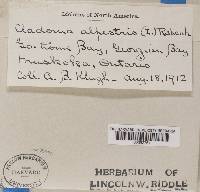 Lichens of North America.
Cladonia alpestris (L.) Rabenh.
Go Home Bay, Georgian Bay
Muskoka, Ontario
Coll. A. B. Klugh. Aug. 18, 1912
HARVARD
HERBARIUM OF
LINCOLN W. RIDDLE